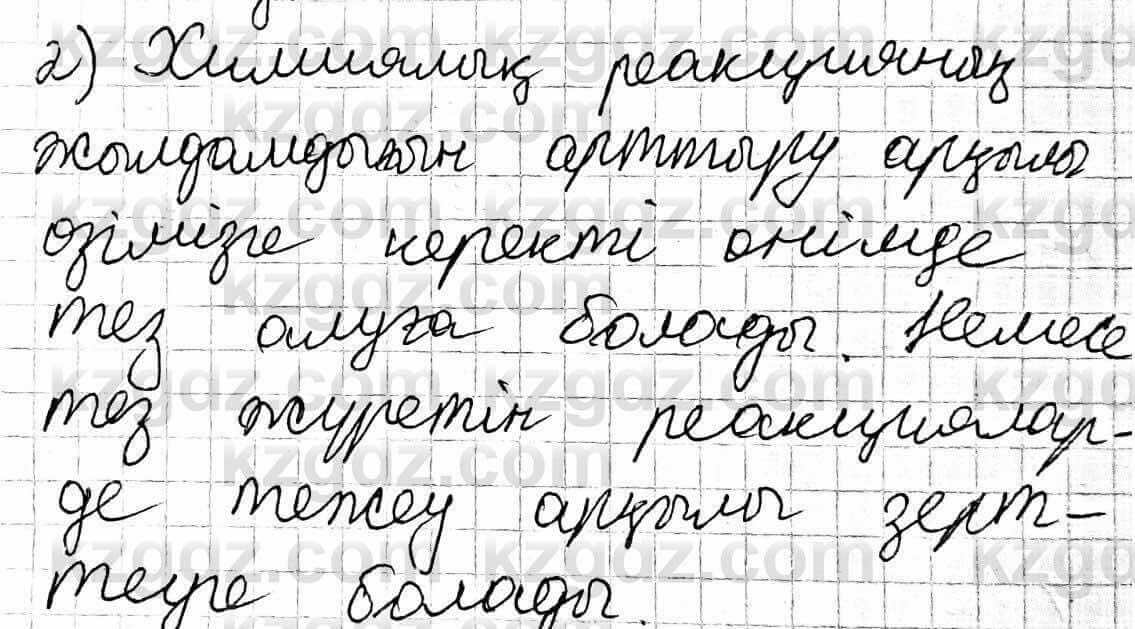 2) Химиялық реакцияның
жылдамдығын арттыру арқылы
өзімізге керекті өнімде
тез алуға болады. Немесе
тез жүретін реакциялар-
де тежеу арқылы зерт-
теуге болады.